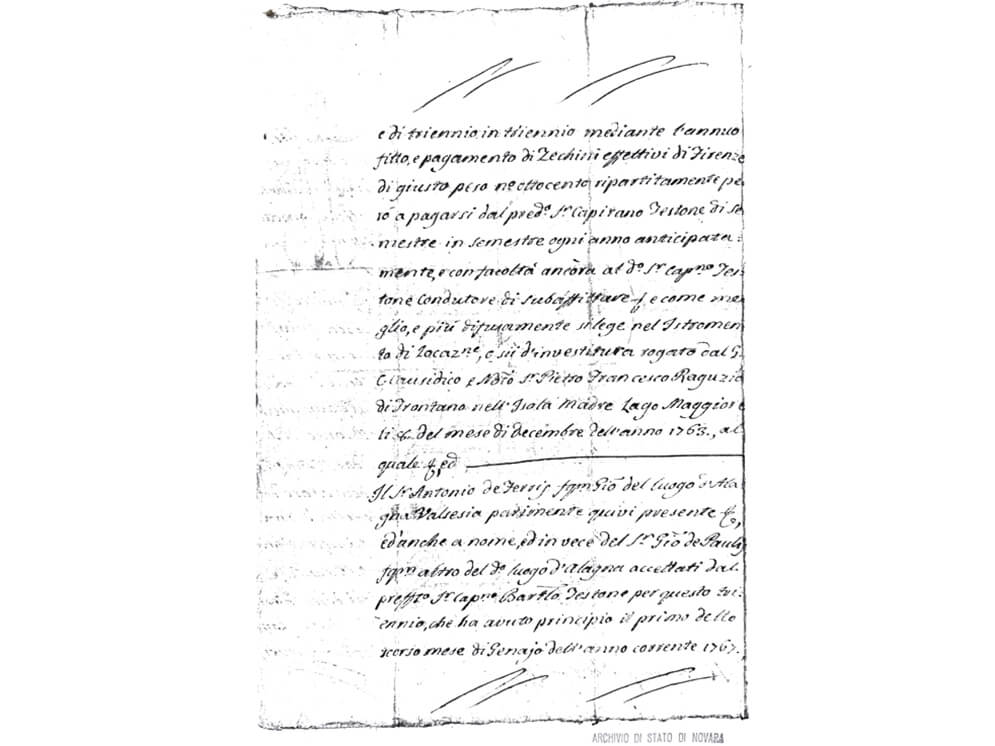 e di triennio in triennio mediante l'annuo
fitto, e pagamento di Zechini effettivi di Firenze
di giusto peso n.o ottocento ripartitamente pe
rò a pagarsi dal pred.o S.r Capitano Testone di se
mestre in semestre ogni anno anticipata
mente, e con facoltà ancòra al d.o S.r Cap.no Tes
tone Condutore di subaffittare e come me
glio, e più difusamente si lege nel Istromen
to di Locaz.ne, e sii d'investitura rogato dal S.
Causidico e Not.o S.r Pietro Francesco Raguzio
di Trontano nell'Isola Madre Lago Maggiore
li 8. del mese di Decembre dell'anno 1763., al
quale &, ed
Il S.r Antonio de Ferris fqm Gio del luogo d'Ala
gna Valsesia parimente quivi presente &,
ed'anche a nome, ed in vece del S.r Gio de Paulis
fqm altro del d.o luogo d'Alagna accettati dal
pref.to S.r Cap.no Bart.o Testone per questo tri
ennio, che ha avuto principio il primo dello
scorso mese di Genajo dell'anno corrente 1767.
ARCHIVIO DI STATO DI NOVARA